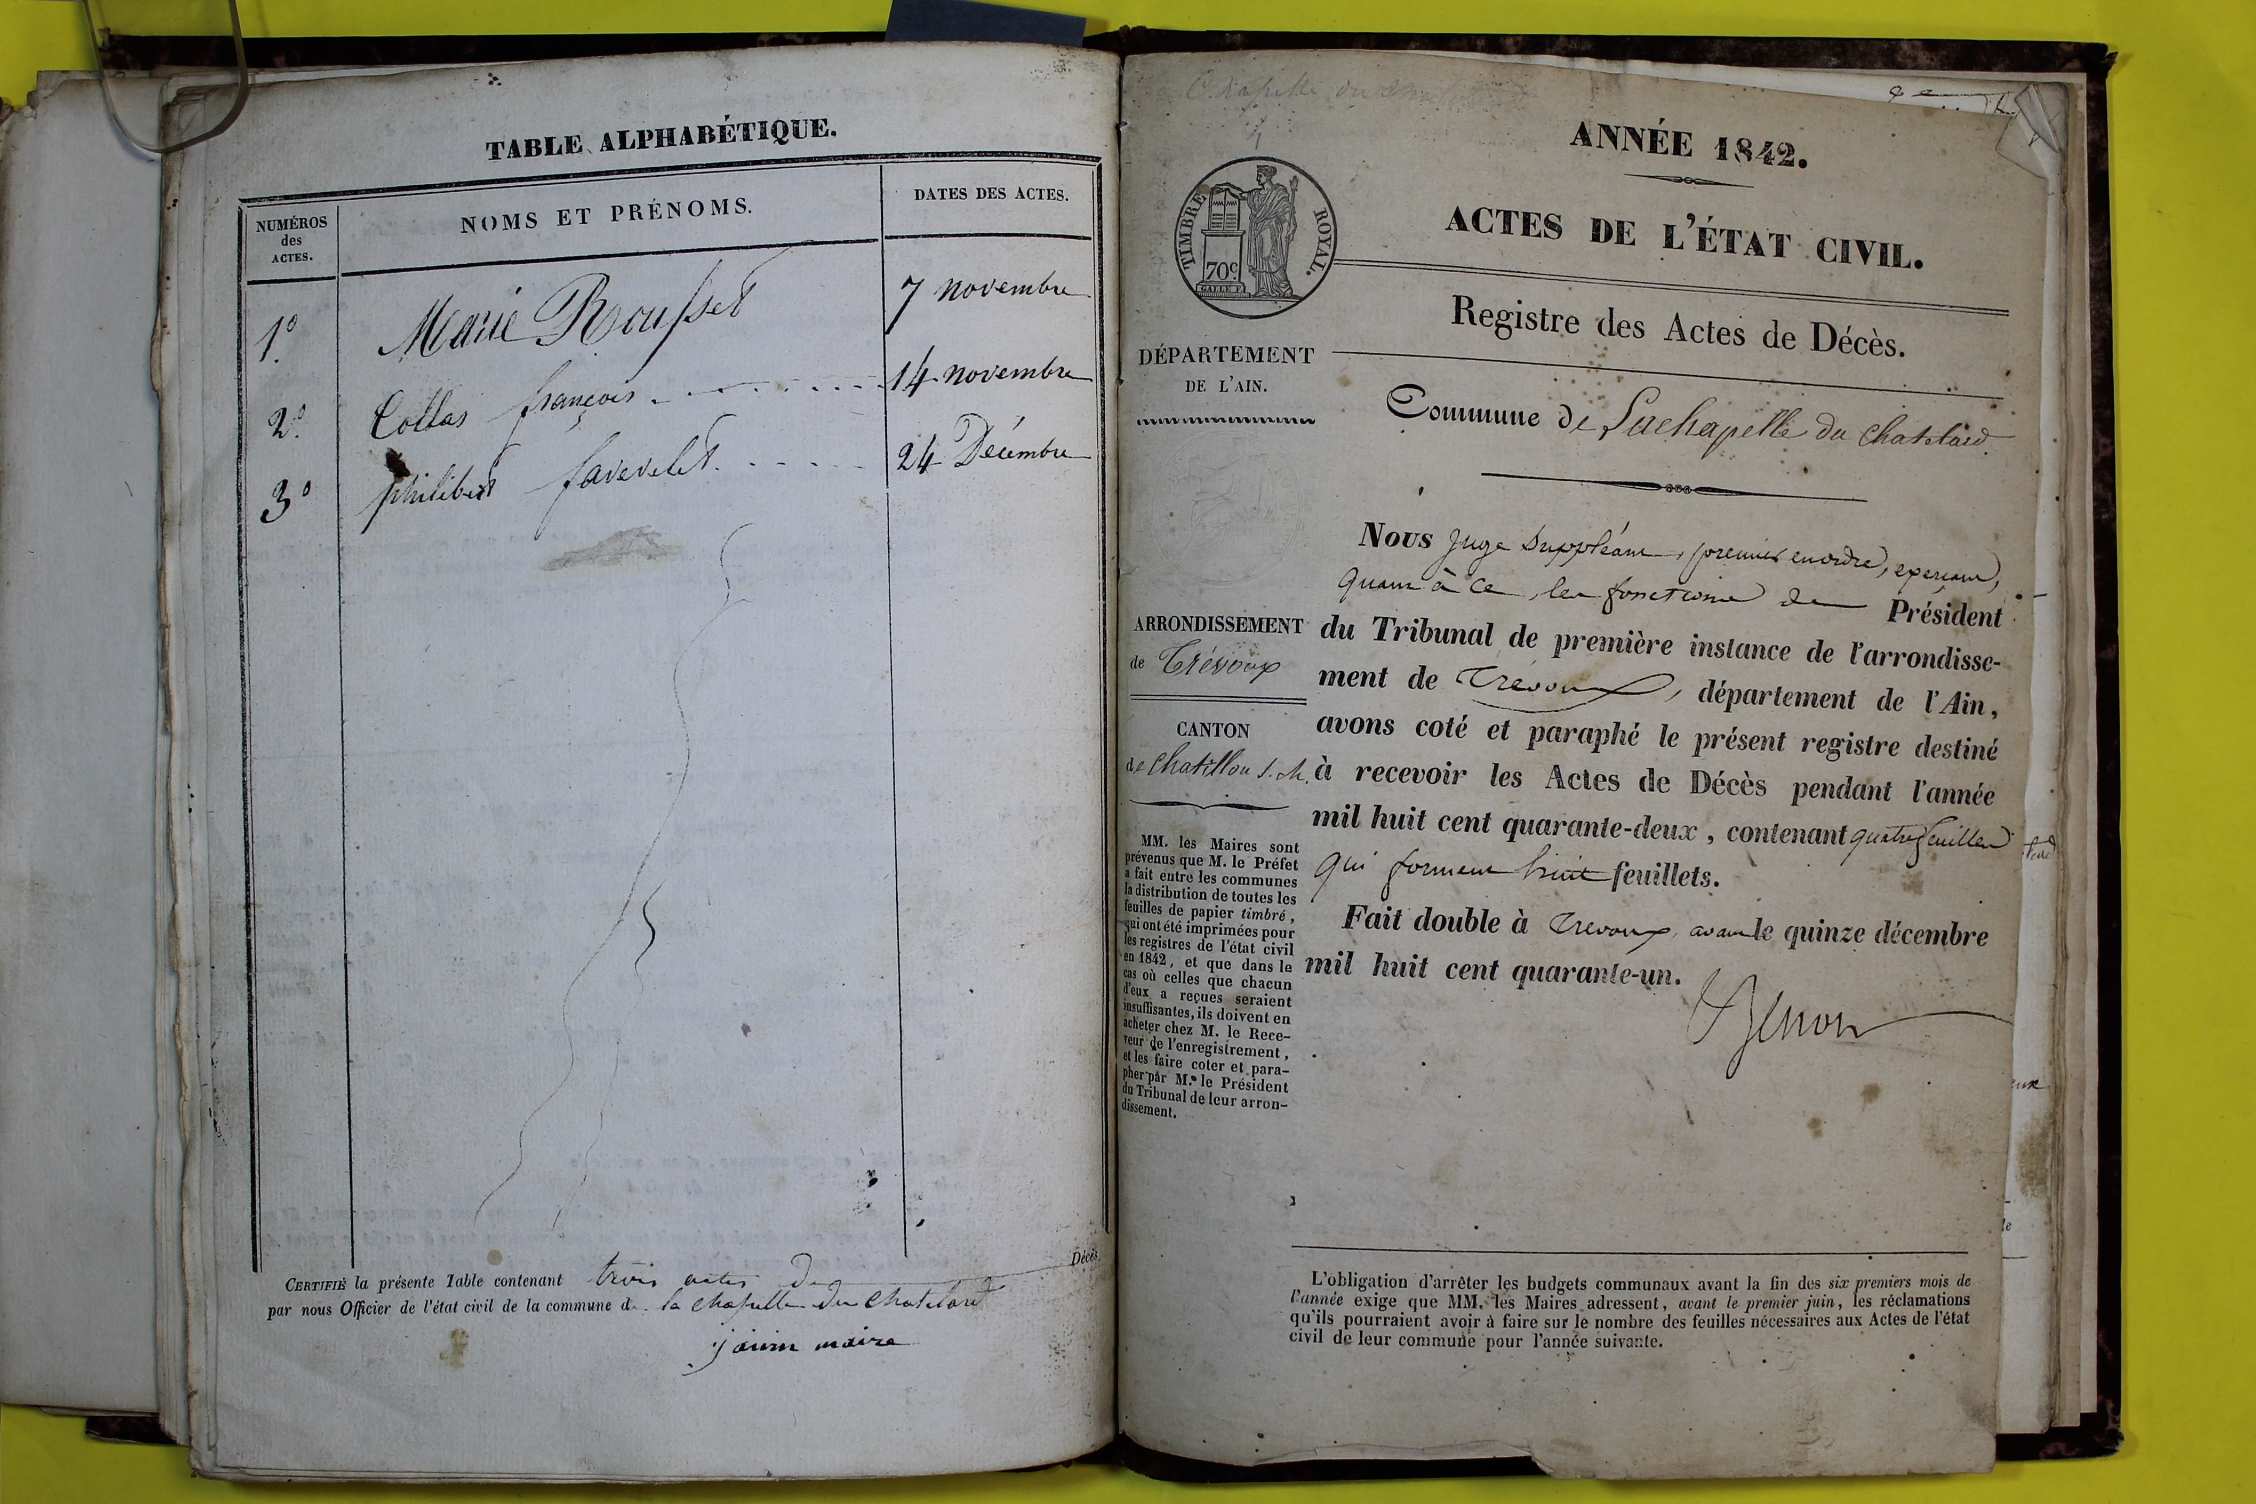 TABLE ALPHABÉTIQUE.
NUMÉROS
des
ACTES.
NOMS ET PRÉNOMS.
DATES DES ACTES.
1º Marie Rousset 7 novembre
2º Collas françois 14 novembre
3º philibert favevelet 24 Décembre
CERTIFIÉ la présente Table contenant trois actes De Décès
par nous Officier de l'état civil de la commune de la chapelle du chatelard
janin maire
Chapelle du
ANNÉE 1842.
ACTES DE L'ÉTAT CIVIL.
TIMBRE ROYAL.
70c
Registre des Actes de Décès.
DÉPARTEMENT
DE L'AIN.
Commune de Lachapelle du chatelard
Nous Juge Suppléant, premier en ordre, exerçant,
quant à ce, les fonctions de Président
du Tribunal de première instance de l'arrondisse-
ment de Trévoux, département de l'Ain,
avons coté et paraphé le présent registre destiné
à recevoir les Actes de Décès pendant l'année
mil huit cent quarante-deux, contenant quatre feuilles
qui forment huit feuillets.
Fait double à Trevoux, avant le quinze décembre
mil huit cent quarante-un.
ARRONDISSEMENT
de Trévoux
CANTON
de chatillon s. M.
MM. les Maires sont
prévenus que M. le Préfet
a fait entre les communes
la distribution de toutes les
feuilles de papier timbré,
qui ont été imprimées pour
les registres de l'état civil
en 1842, et que dans le
cas où celles que chacun
d'eux a reçues seraient
insuffisantes, ils doivent en
acheter chez M. le Rece-
veur de l'enregistrement,
et les faire coter et para-
pher par M. le Président
du Tribunal de leur arron-
dissement.
L'obligation d'arrêter les budgets communaux avant la fin des six premiers mois de
l'année exige que MM. les Maires adressent, avant le premier juin, les réclamations
qu'ils pourraient avoir à faire sur le nombre des feuilles nécessaires aux Actes de l'état
civil de leur commune pour l'année suivante.